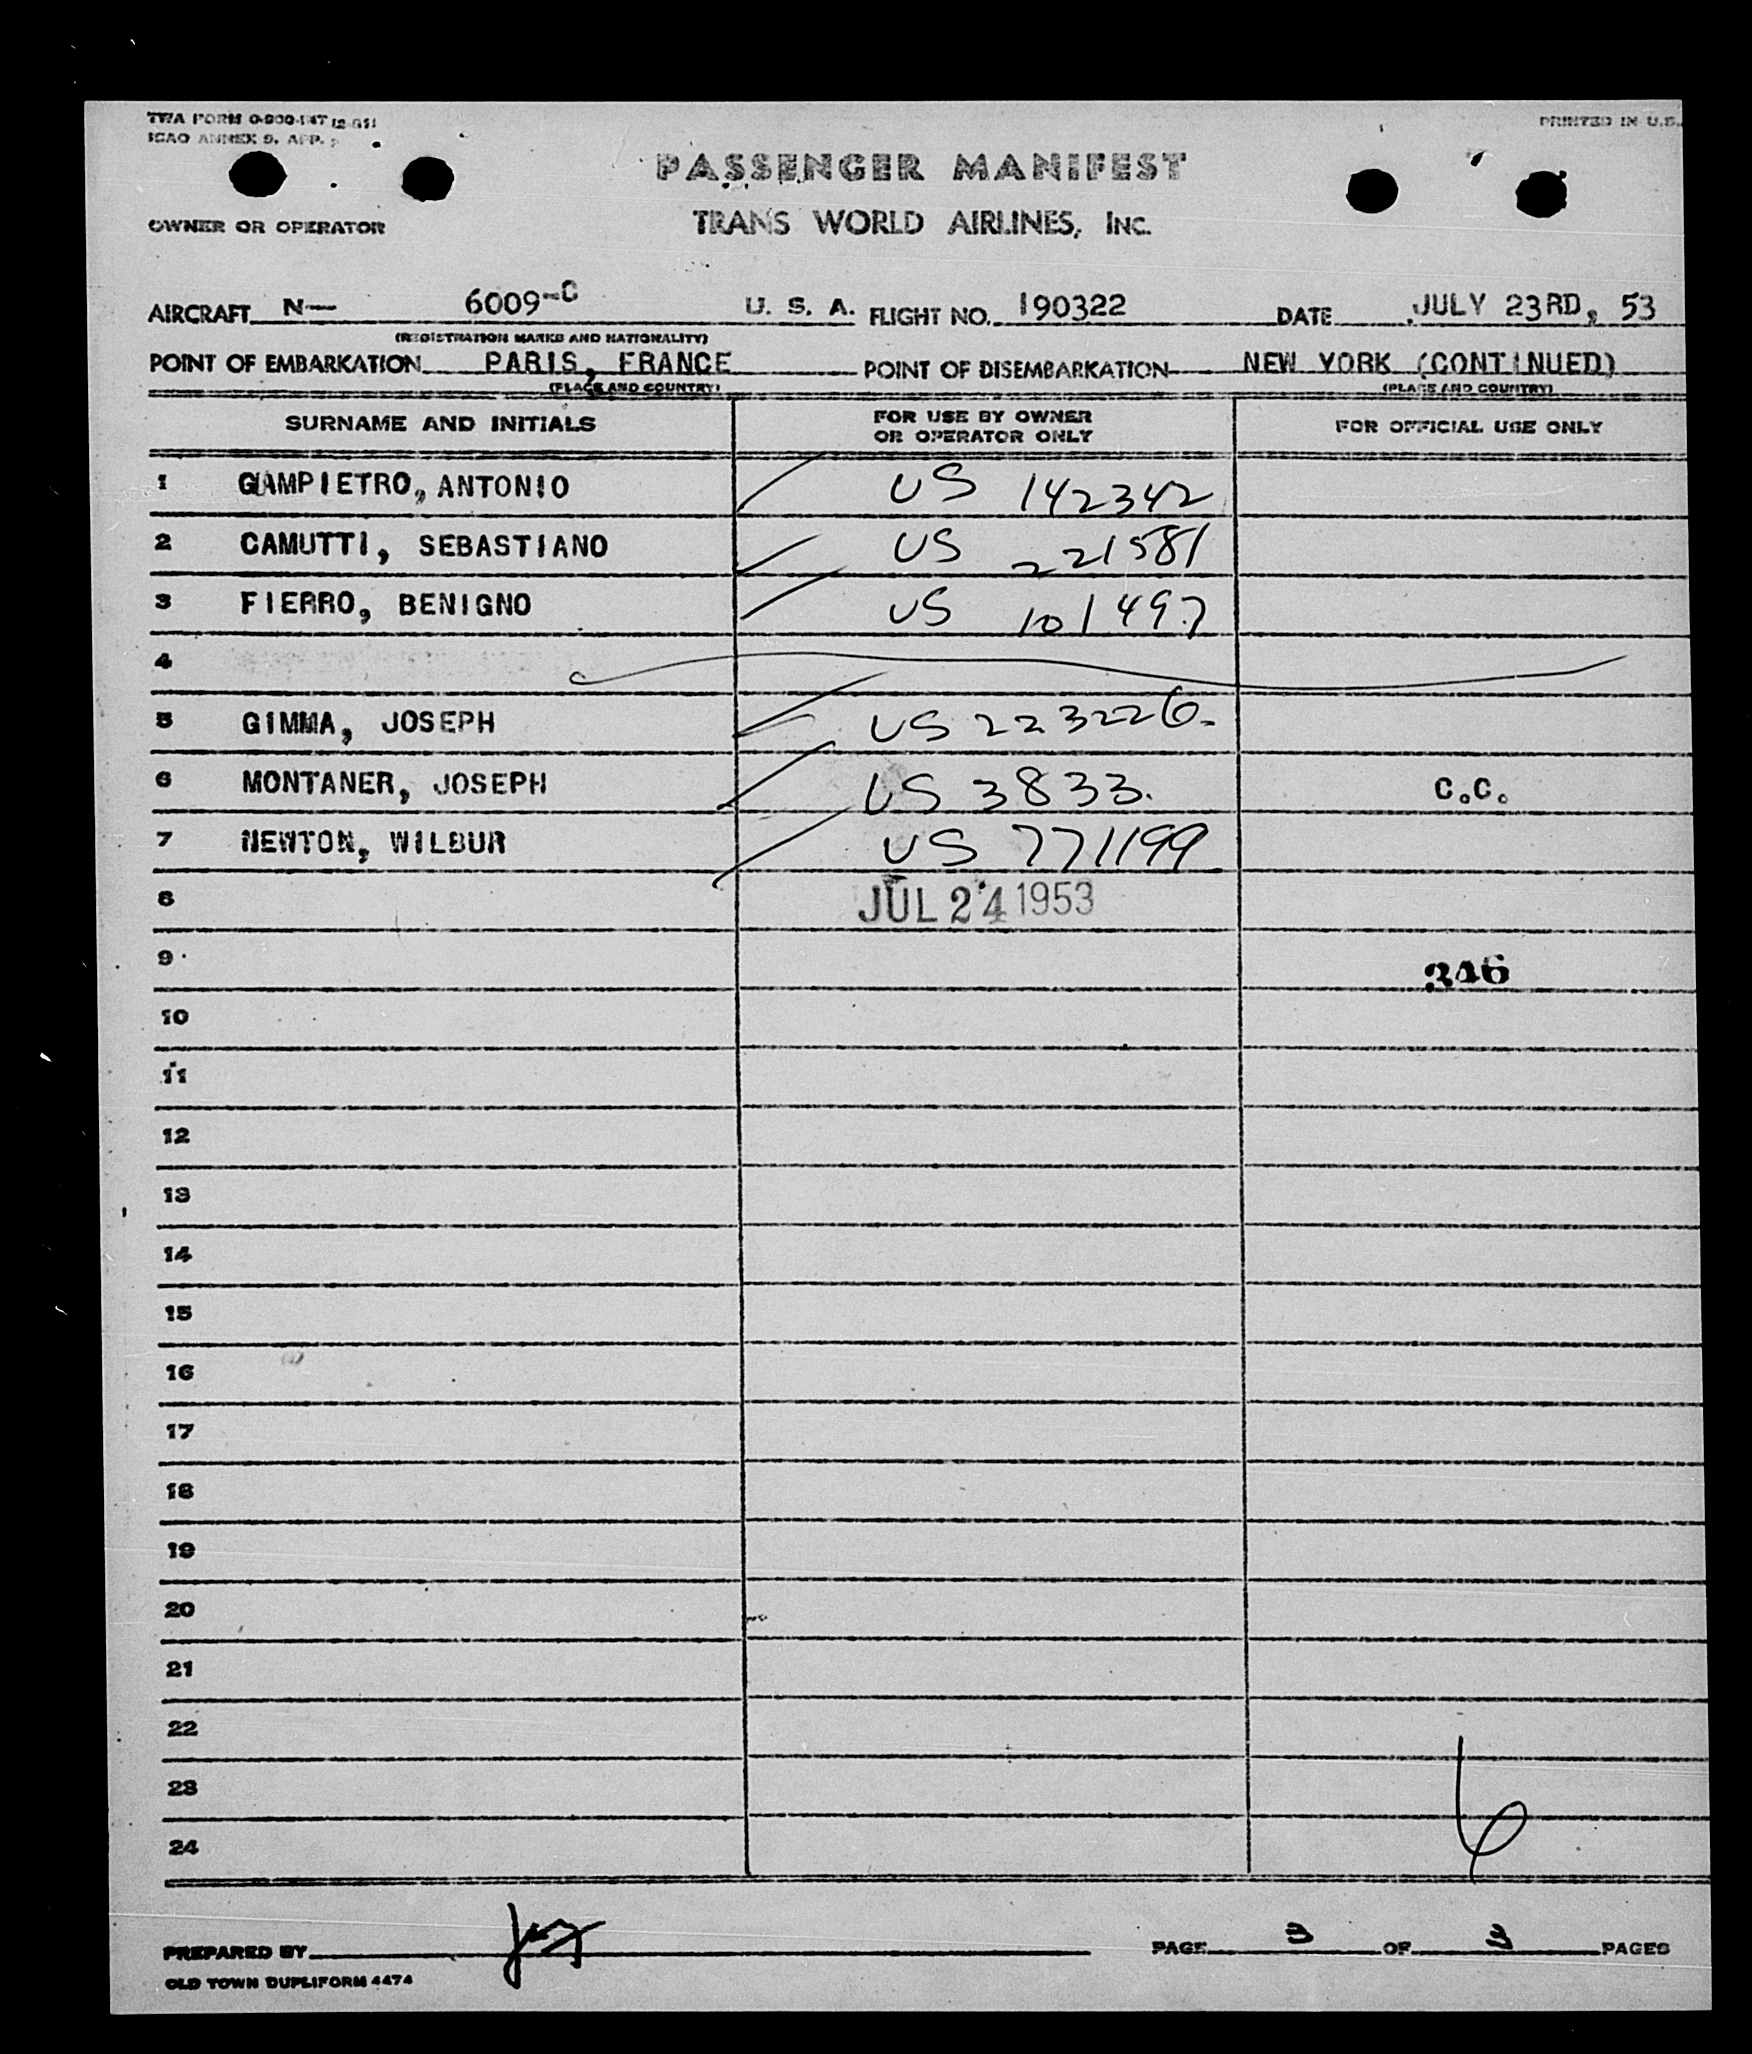 TWA FORM O-900-147 (2-51)
PRINTED IN U.S.
ICAO ANNEX 9, APP.
PASSENGER MANIFEST
OWNER OR OPERATOR TRANS WORLD AIRLINES, INC.
AIRCRAFT N— 6009-C U. S. A. FLIGHT NO. 190322 DATE JULY 23RD, 53
(REGISTRATION MARKS AND NATIONALITY)
POINT OF EMBARKATION PARIS, FRANCE POINT OF DISEMBARKATION NEW YORK (CONTINUED)
(PLACE AND COUNTRY) (PLACE AND COUNTRY)
SURNAME AND INITIALS FOR USE BY OWNER OR OPERATOR ONLY FOR OFFICIAL USE ONLY
1 GAMPIETRO, ANTONIO US 142342
2 CAMUTTI, SEBASTIANO US 221581
3 FIERRO, BENIGNO US 101497
4
5 GIMMA, JOSEPH US 223226.
6 MONTANER, JOSEPH US 3833. C.C.
7 NEWTON, WILBUR US 771199
8 JUL 24 1953
9 346
10
11
12
13
14
15
16
17
18
19
20
21
22
23
24 6
PREPARED BY PAGE 3 OF 3 PAGES
OLD TOWN DUPLIFORM 4474